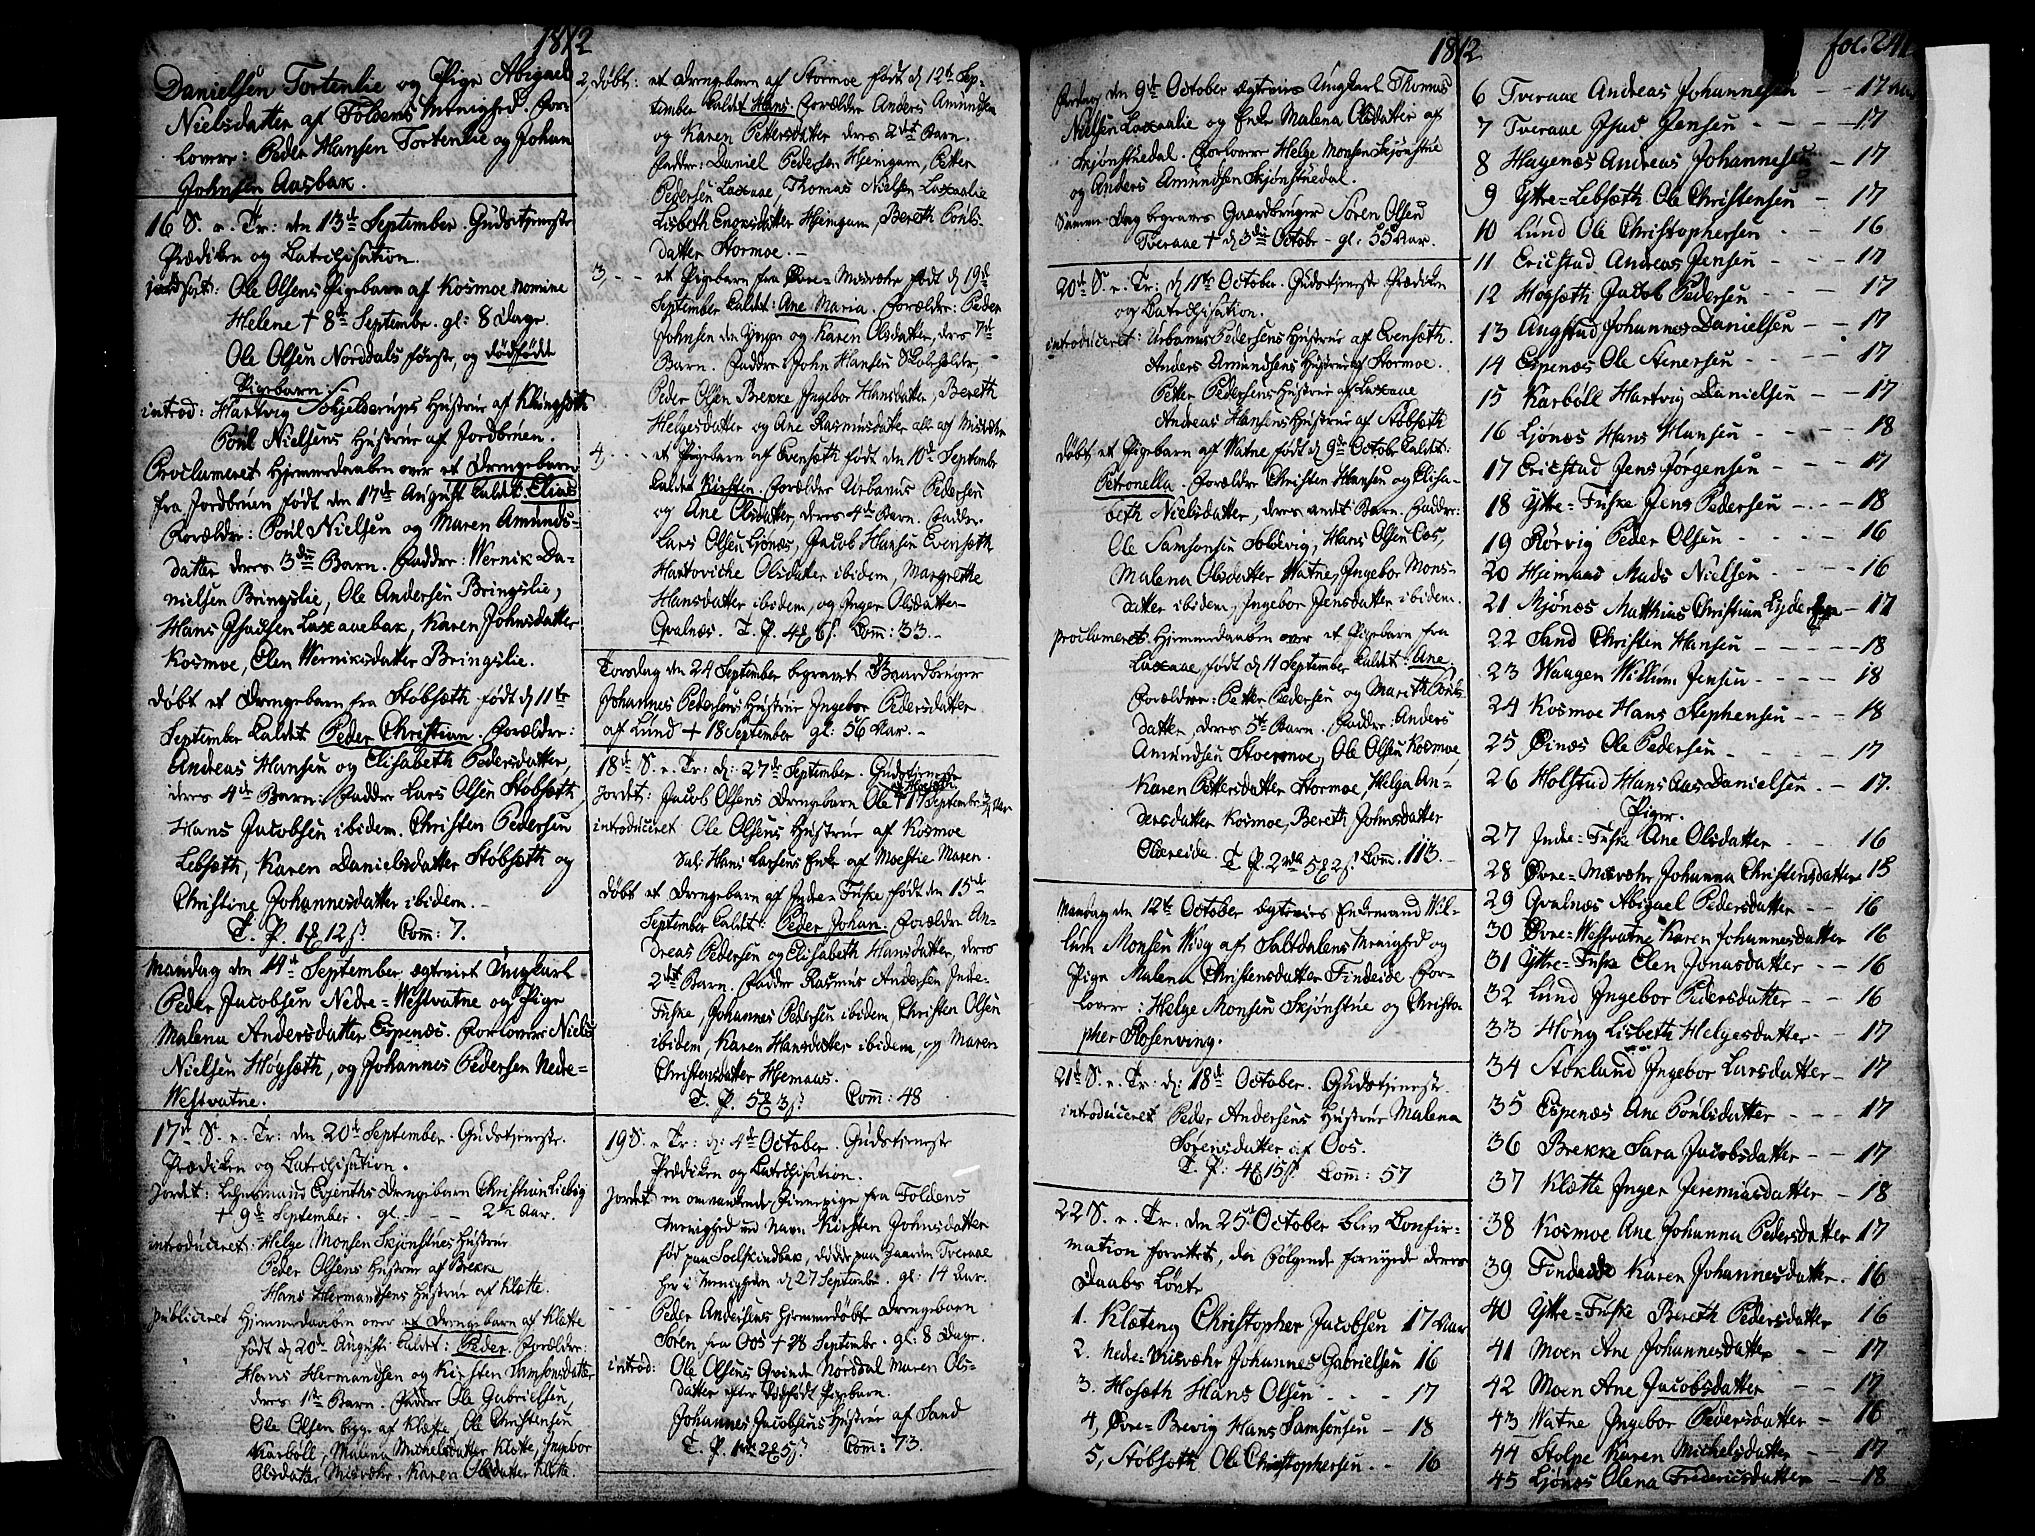 1812
Danielsen Tortenlie og Pige Abigael
Nielsdatter af Foldens Menighed. For-
lovere: Peder Hansen Tortenlie og Johan
Johnsen Aasbak.
16 S. e. Tr: den 13de September. Gudstjeneste
Prædiken og Catechisation.
jordfæst: Ole Olsens Pigebarn af Kosmoe nomine
Helene † 8de Septembr. gl: 8 Dage.
Ole Olsen Norddals første, og dødfødte
Pigebarn.
introd: Hartvig Schjelderups Hustrue af Klungsæth
Poul Nielsens Hustrue af Jordbruen.
Proclameret Hjemmedaaben over et Drengebarn
fra Jordbruen født den 17de August kaldet: Elias
Forældre: Poul Nielsen og Maren Amunds-
datter deres 3die Barn. Fadder: Wernik Da-
nielsen Bringslie, Ole Andersen Bringslie,
Hans Isachsen Laxaaebak, Karen Johnsdatter
Kosmoe, Elen Werniksdatter Bringslie.
døbt et Drengebarn fra Støbsæth født d 11te
September kaldet Peder Christian. Forældre:
Andreas Hansen og Elisabeth Pedersdatter,
deres 4de Barn: Fadder Lars Olsen Støbsæth
Hans Jacobsen ibidem. Christen Pedersen
Lebsæth, Karen Danielsdatter Støbsæth og
Christine Johannesdatter ibidem.
T. P. 12 Com: 7.
Mandag den 14de September egteviet Ungkarl
Peder Jacobsen Nedre-Westvatne og Pige
Malena Andersdatter Espenæs. Forlovere: Niels
Nielsen Høgsæth, og Johannes Pedersen Nedre-
Westvatne.
17de S. e. Tr: den 20de September. Gudstjeneste.
Prædiken og Catechisation.
Jordet: Drengebarn Christian
† 9de September. gl. - - - 2 1/2 Aar.
introduceret: Helge Monsen Skjønstues Hustrue
Peder Olsens Hustrue af Brekke
Hans Hermandsens Hustrue af Klette.
publiceret Hjemmedaaben over et Drengebarn af Klette
født d 20de Augusti kaldet: Peder. Forældre:
Hans Hermandsen og Kirsten Samsonsdatter
deres 1te Barn. Fadder Ole Gabrielsen,
Ole Olsen byg. af Klette, Ole Christensen
Karbøll, Malena Michelsdatter Klette, Ingebor
Olsdatter Misvæhr. Karen Olsdatter Klette.
2, døbt: et Drengebarn af Stormoe født d 12te Sep-
tember kaldet Hans. Forældre Anders Amundsen
og Karen Pettersdatter deres 2det Barn.
Fadder: Daniel Pedersen Hjemgam, Petter
Pedersen Laxaae, Thomas Nielsen Laxaalie
Lisbeth Enoksdatter Hjemgam, Bereth Pouls-
datter Stormoe.
3, - - et Pigebarn fra Øvre-Misvæhr født d 19de
September kaldet: Ane Maria. Forældre: Peder
Johnsen den Yngre og Karen Olsdatter, deres 7de
Barn. Fadder: John Hansen Skoleholder,
Peder Olsen Brekke Ingebor Hansdatter, Bereth
Helgesdatter og Ane Rasmusdatter alle af Misvæhr
4, - - et Pigebarn af Evensæth født den 10de Septembr
kaldet Kirsten. Forældre Urbanus Pedersen
og Ane Olsdatter, deres 4de Barn. Faddr.
Lars Olsen Ljønæs, Jacob Hansen Evensæth
Hartoviche Olsdatter ibidem, Margrethe
Hansdatter ibidem, og Inger Olsdatter
Qvalnæs. T. P. Com: 33.
Torsdag den 24 September begravet Gaardbruger
Johannes Pedersens Hustrue Ingebor Pedersdatter
af Lund † 18 September gl: 56 Aar.
18de S. e. Tr: d: 27de September. Gudstjeneste
Jordet: Jacob Olsens Drengebarn Ole † 17 September
introduceret Ole Olsens Hustrue af Kosmoe
Sal: Hans Larsens Enke af Moestie Maren.
døbt et Drengebarn af Indre Fuske født den 15de
September kaldet: Peder Johan. Forældre An-
dreas Pedersen og Elisabeth Hansdatter, deres
2det Barn. Fadder Rasmus Andersen Indre-
Fuske, Johannes Pedersen ibidem Christen Olsen
ibidem, Karen Hansdatter ibidem, og Maren
Christensdatter Hjemaas.
T. P. Com: 48
19 S. e Tr: d: 4de October. Gudstjeneste
Prædiken og Catechisation.
Jordet: en omvankende Finnepige fra Foldens
Menighed ved Navn Kirsten Johnsdatter
fød paa Soelskindbak, døde paa Gaarden Tveraae
her i Menigheden d 27 Septembr. gl: 14 Aar.
Peder Andersens hjemmedøbte Drengebarn
Søren fra Oos † 28 Septembr. gl: 8 Dage.
introd: Ole Olsens Qvinde Norddal Maren Ols-
datter efter dødfødt Pigebarn.
Johannes Jacobsens Hustrue af Sand
T. P. Com: 73.
1812
Fredag den 9de October egteviet Ungkarl Thomas
Nielsen Laxaalie og Enke Malena Olsdatter af
Skjønstuedal. Forlovere Helge Monsen Skjønstue
og Anders Amundsen Skjønstuedal.
Samme Dag begraves Gaardbruger Søren Olsen
Tveraae † d 3die Octobr - gl: 55 Aar.
20de S. e. Tr: d 11te October. Gudstjeneste Prædiken
og Catechisation.
introduceret: Urbanus Pedersens Hustrue af Evensæth.
Anders Amundsens Hustrue af Stormoe.
Petter Pedersens Hustrue af Laxaae
Andreas Hansens Hustrue af Støbsæth
døbt et Pigebarn af Watne født d 9de Octobr kaldet:
Petronella. Forældre Christen Hansen og Elisa-
beth Nielsdatter, deres andet Barn. Fadder:
Ole Samsonsen Soldvig, Hans Olsen Oos,
Malena Olsdatter Watne, Ingebor Mons-
datter ibidem, Ingebor Jensdatter ibidem.
proclameret Hjemmedaaben over et Pigebarn fra
Laxaae, født d 11 September kaldet: Ane.
Forældre: Petter Pedersen og Marith Pouls-
datter, deres 5te Barn. Fadder: Anders
Amundsen Stoermoe, Ole Olsen Kosmoe,
Karen Pettersdatter Stormoe, Helga An-
dersdatter Kosmoe, Bereth Johnsdatter
T. P. Com: 113.
Mandag den 12te October egtevies Enkemand Wil-
lum Monsen Wiig af Saltdalens Menighed og
Pige Malena Christensdatter Findeide. For-
lovere: Helge Monsen Skjønstue og Christo-
pher Rosenving.
21de S. e. Tr: d: 18de October. Gudstjeneste.
introduceret Peder Andersens Hustrue Malena
Sørensdatter af Oos.
T. P: Com: 57
22 S. e. Tr. den 25de October blev Confir-
mation forrettet, da følgende fornyede deres
Daabs Løvte
1. Klæteng Christopher Jacobsen 17 Aar
2. Nedre-Misvæhr Johannes Gabrielsen 16
3. Hosæth Hans Olsen - - - 17
4, Øvre-Brevig Hans Samsonsen - 18
5, Støbsæth Ole Christophersen - - 16
fol. 241
6 Tveraae Andreas Johannesen - - 17 Aar
7 Tveraae Isach Jensen - - - 17
8 Hagenæs Andreas Johannesen - 17
9 Yttre-Lebsæth Ole Christensen - 17
10 Lund Ole Christophersen - - 16
11 Ericstad Andreas Jensen - - 17
12 Høgsæth Jacob Pedersen - - - 17
13 Angstad Johannes Danielsen - - 17
14 Espenæs Ole Stenersen - - - 17
15 Karbøll Hartvig Danielsen - - 17
16 Ljønæs Hans Hansen - - - - 18
17 Ericstad Jens Jørgensen - - - 17
18 Yttre-Fuske Jens Pedersen - - - 18
19 Rørvig Peder Olsen - - - - 16
20 Hjemaas Mads Nielsen - - - - 16
21 Mjønæs Matthias Christian Lydersen - 17
22 Sand Christen Hansen - - - - 18
23 Waagen Willum Jensen - - - - 18
24 Kosmoe Hans Stephensen - - - 18
25 Øinæs Ole Pedersen - - - - 17
26 Holstad Hans Aas Danielsen. - - 17.
Piger.
27 Indre-Fuske Ane Olsdatter - - 16
28 Øvre-Misvæhr Johanna Christensdatter 15
29 Qvalnæs Abigael Pedersdatter - - 16
30 Øvre-Westvatne Karen Johannesdatter 16
31 Yttre-Fuske Elen Jonasdatter - - 16
32 Lund Ingebor Pedersdatter - - 16
33 Høug Lisbeth Helgesdatter - - 17
34 Stoklund Ingebor Larsdatter - 17
35 Espenæs Ane Poulsdatter - - - 17
36 Brekke Sara Jacobsdatter - - 17
37 Klætte Inger Jeremiasdatter - 18
38 Kosmoe Ane Johanna Pedersdatter 17
39 Findeide Karen Johannesdatter. - 16
40 Yttre-Fuske Bereth Pedersdatter 16
41 Moen Ane Johannesdatter - - 17
42 Moen Ane Jacobsdatter - - 17
43 Watne Ingebor Pedersdatter - - 16
44 Stolpe Karen Michelsdatter - - 17
45 Ljønæs Olena Friderichsdatter - - 18